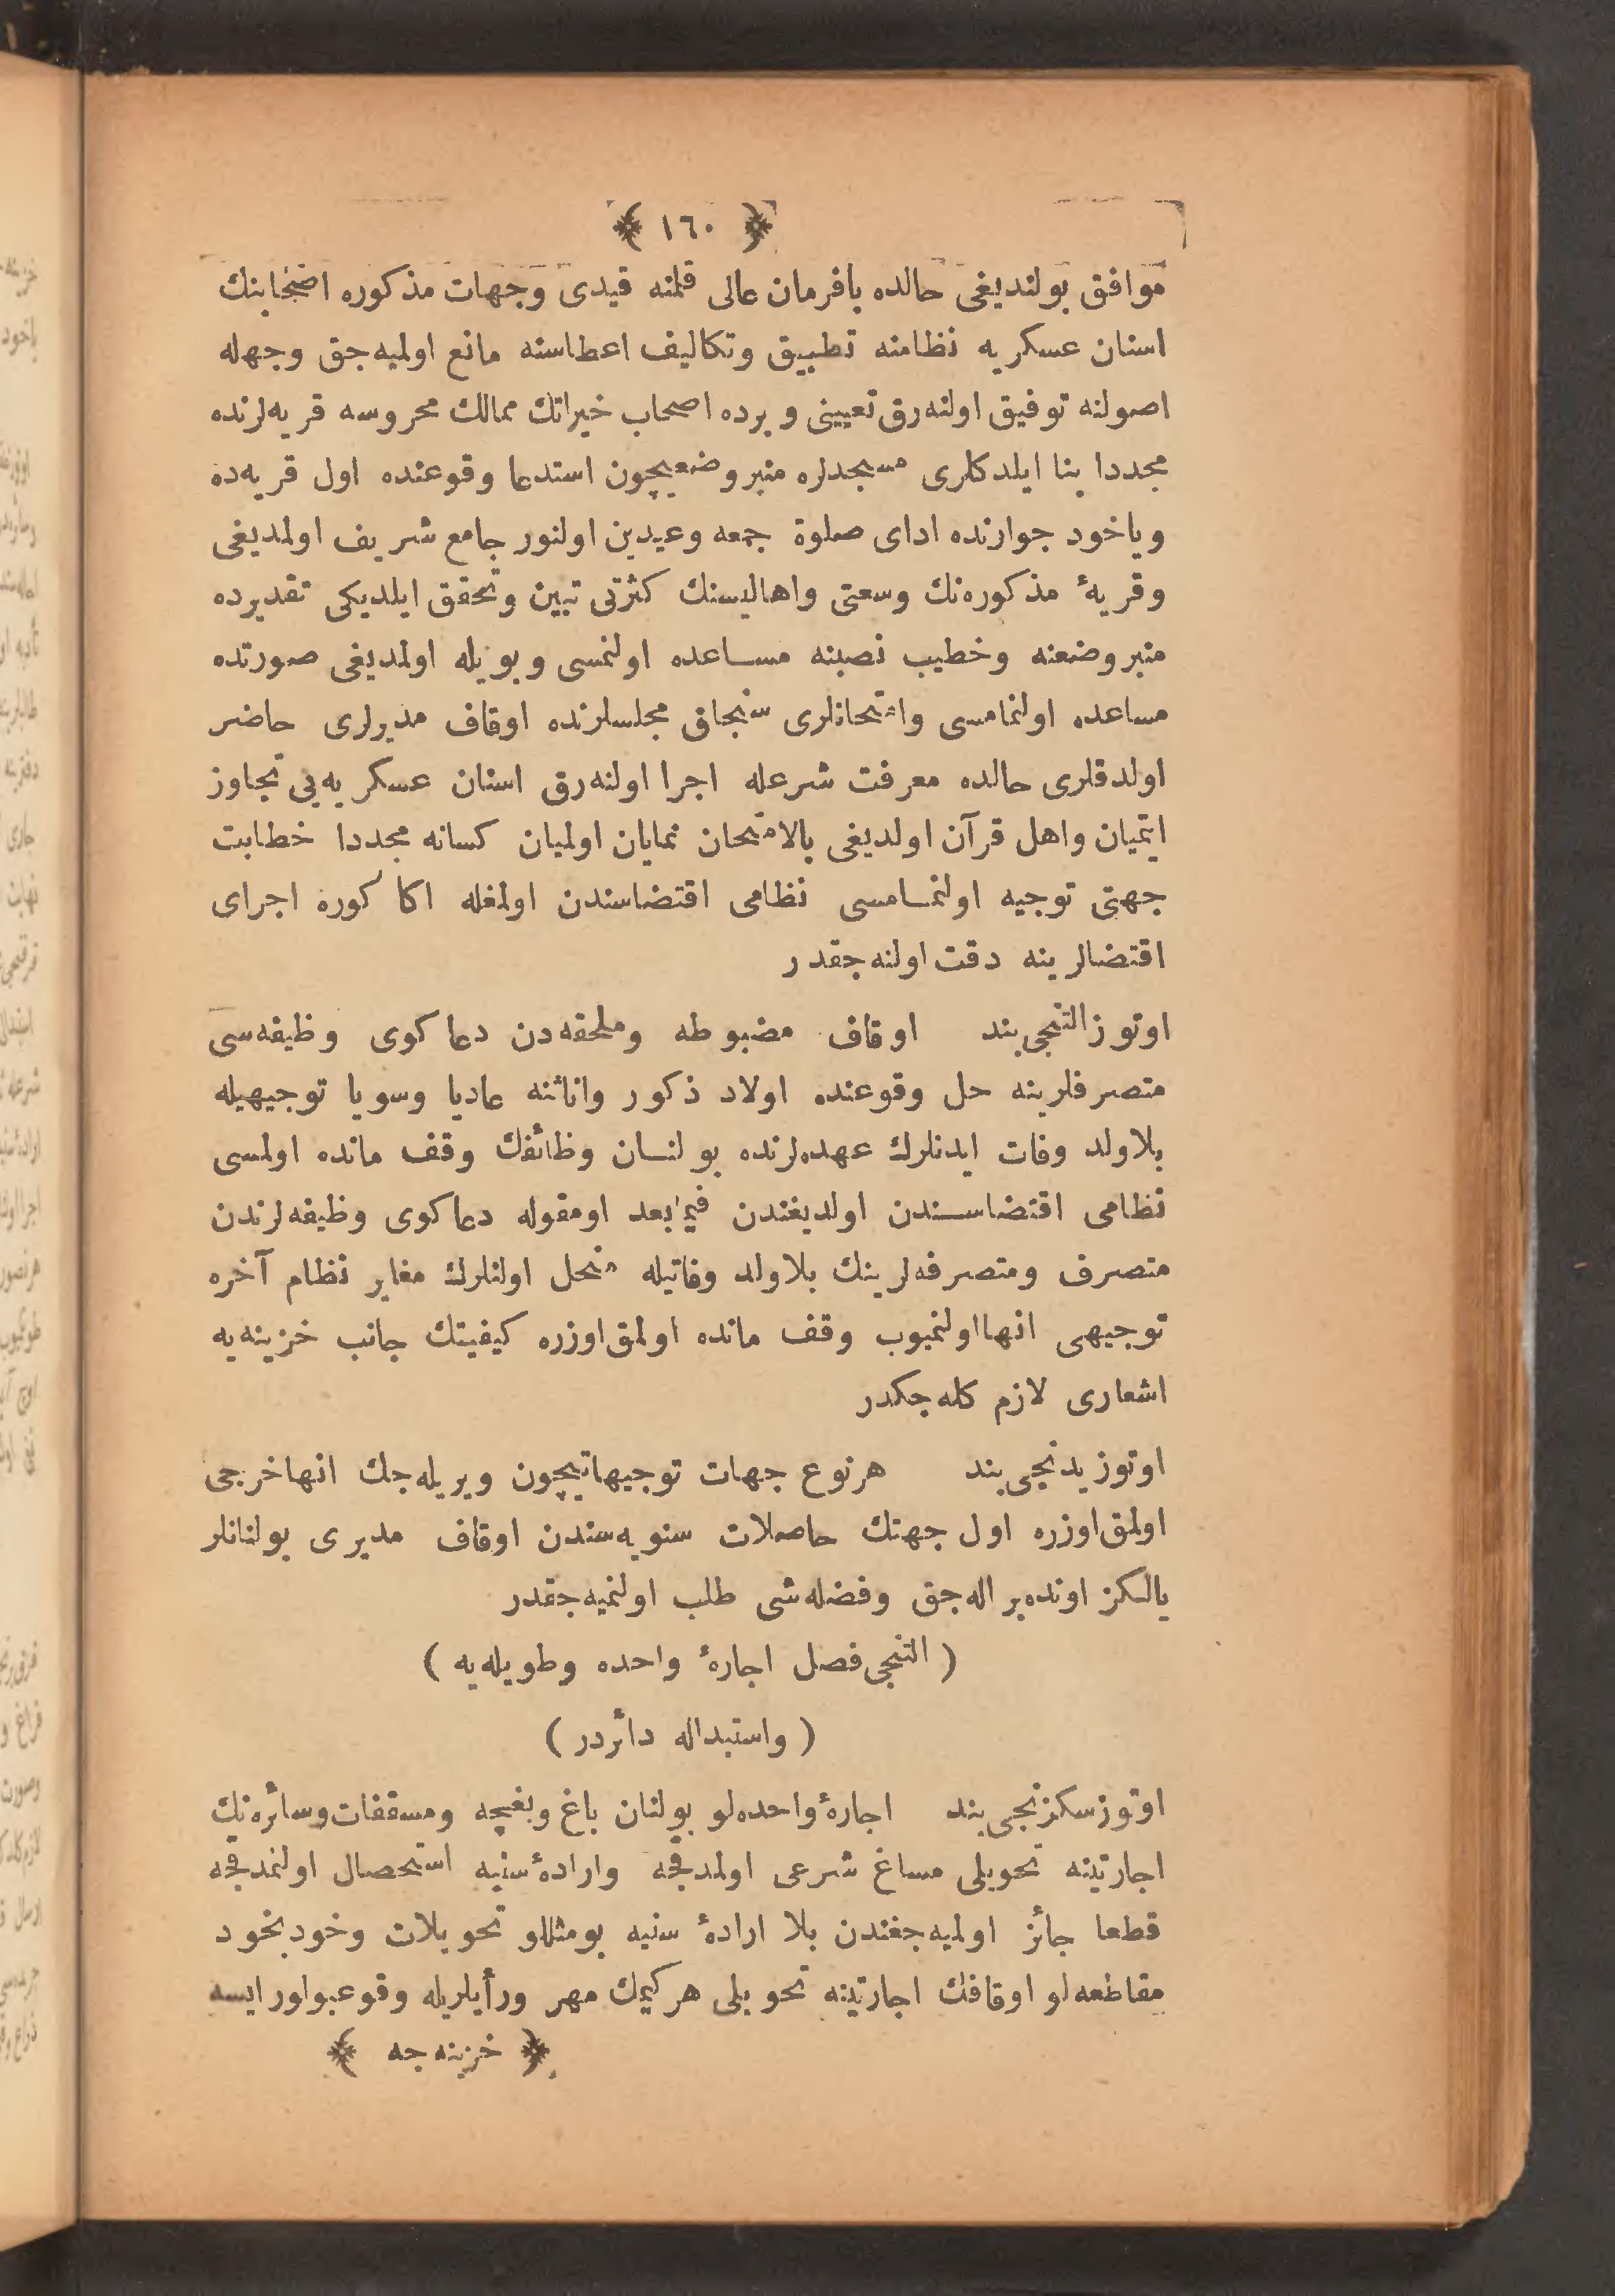 ﴿ ١٦٠ ﴾
موافق بولنديغى حالده بافرمان عالى قلمنه قيدى وجهات مذكوره اصحابنك
اسنان عسكريه نظامنه تطبيق وتكاليف اعطاسنه مانع اولميه جق وجهله
اصولنه توفيق اولنه رق تعيينى وبرده اصحاب خيراتك ممالك محروسه قريه لرنده
مجددا بنا ايلدكلرى مسجدلره منبر وضعيچون استدعا وقوعنده اول قريه ده
وياخود جوارنده اداى صلوة جمعه وعيدين اولنور جامع شريف اولمديغى
وقريۀ مذكوره نك وسعتى واهاليسنك كثرتى تبين وتحقق ايلديكى تقديرده
منبر وضعنه وخطيب نصبنه مساعده اولنمسى وبويله اولمديغى صورتده
مساعده اولنمامسى وامتحانلرى سنجاق مجلسلرنده اوقاف مديرلرى حاضر
اولدقلرى حالده معرفت شرعله اجرا اولنه رق اسنان عسكريه يى تجاوز
ايتميان واهل قرآن اولديغى بالامتحان نمايان اولميان كسانه مجددا خطابت
جهتى توجيه اولنمامسى نظامى اقتضاسندن اولمغله اكا كوره اجراى
اقتضالرينه دقت اولنه جقدر
اوتوزالتنجى بند اوقاف مضبوطه وملحقه دن دعاكوى وظيفه سى
متصرفلرينه حل وقوعنده اولاد ذكور واناثنه عاديا وسويا توجيهيله
بلاولد وفات ايدنلرك عهده لرنده بولنسان وظائفك وقف مانده اولمسى
نظامى اقتضاسندن اولديغندن فيمابعد اومقوله دعاكوى وظيفه لرندن
متصرف ومتصرفه لرينك بلاولد وفاتيله منحل اولنلرك مغاير نظام آخره
توجيهى انها اولنميوب وقف مانده اولمق اوزره كيفيتك جانب خزينه يه
اشعارى لازم كله جكدر
اوتوز يدنجى بند هرنوع جهات توجيهاتيچون ويريله جك انهاخرجى
اولمق اوزره اول جهتك حاصلات سنويه سندن اوقاف مديرى بولنانلر
يالكز اونده بر اله جق وفضله شى طلب اولنميه جقدر
( التنجى فصل اجارۀ واحده وطويله يه )
( واستبداله دائردر )
اوتوزسكزنجى بند اجارۀ واحده لو بولنان باغ وبغچه ومسقفات وسائره نك
اجارتينه تحويلى مساغ شرعى اولمدقجه وارادۀ سنيه استحصال اولنمدقجه
قطعا جائز اولميه جغندن بلا ارادۀ سنيه بومثللو تحويلات وخودبخود
مقاطعه لو اوقافك اجارتينه تحويلى هركيمك مهر ورأيلريله وقوعبولور ايسه
﴿ خزينه جه ﴾